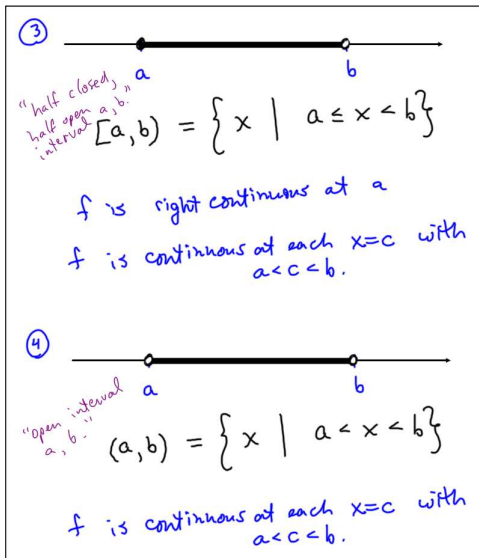 3
a b
"half closed,
half open a, b."
interval
[a, b) = { x | a ≤ x < b }
f is right continuous at a
f is continuous at each x=c with
a<c<b.
4
a b
"open interval
a, b."
(a, b) = { x | a < x < b }
f is continuous at each x=c with
a<c<b.